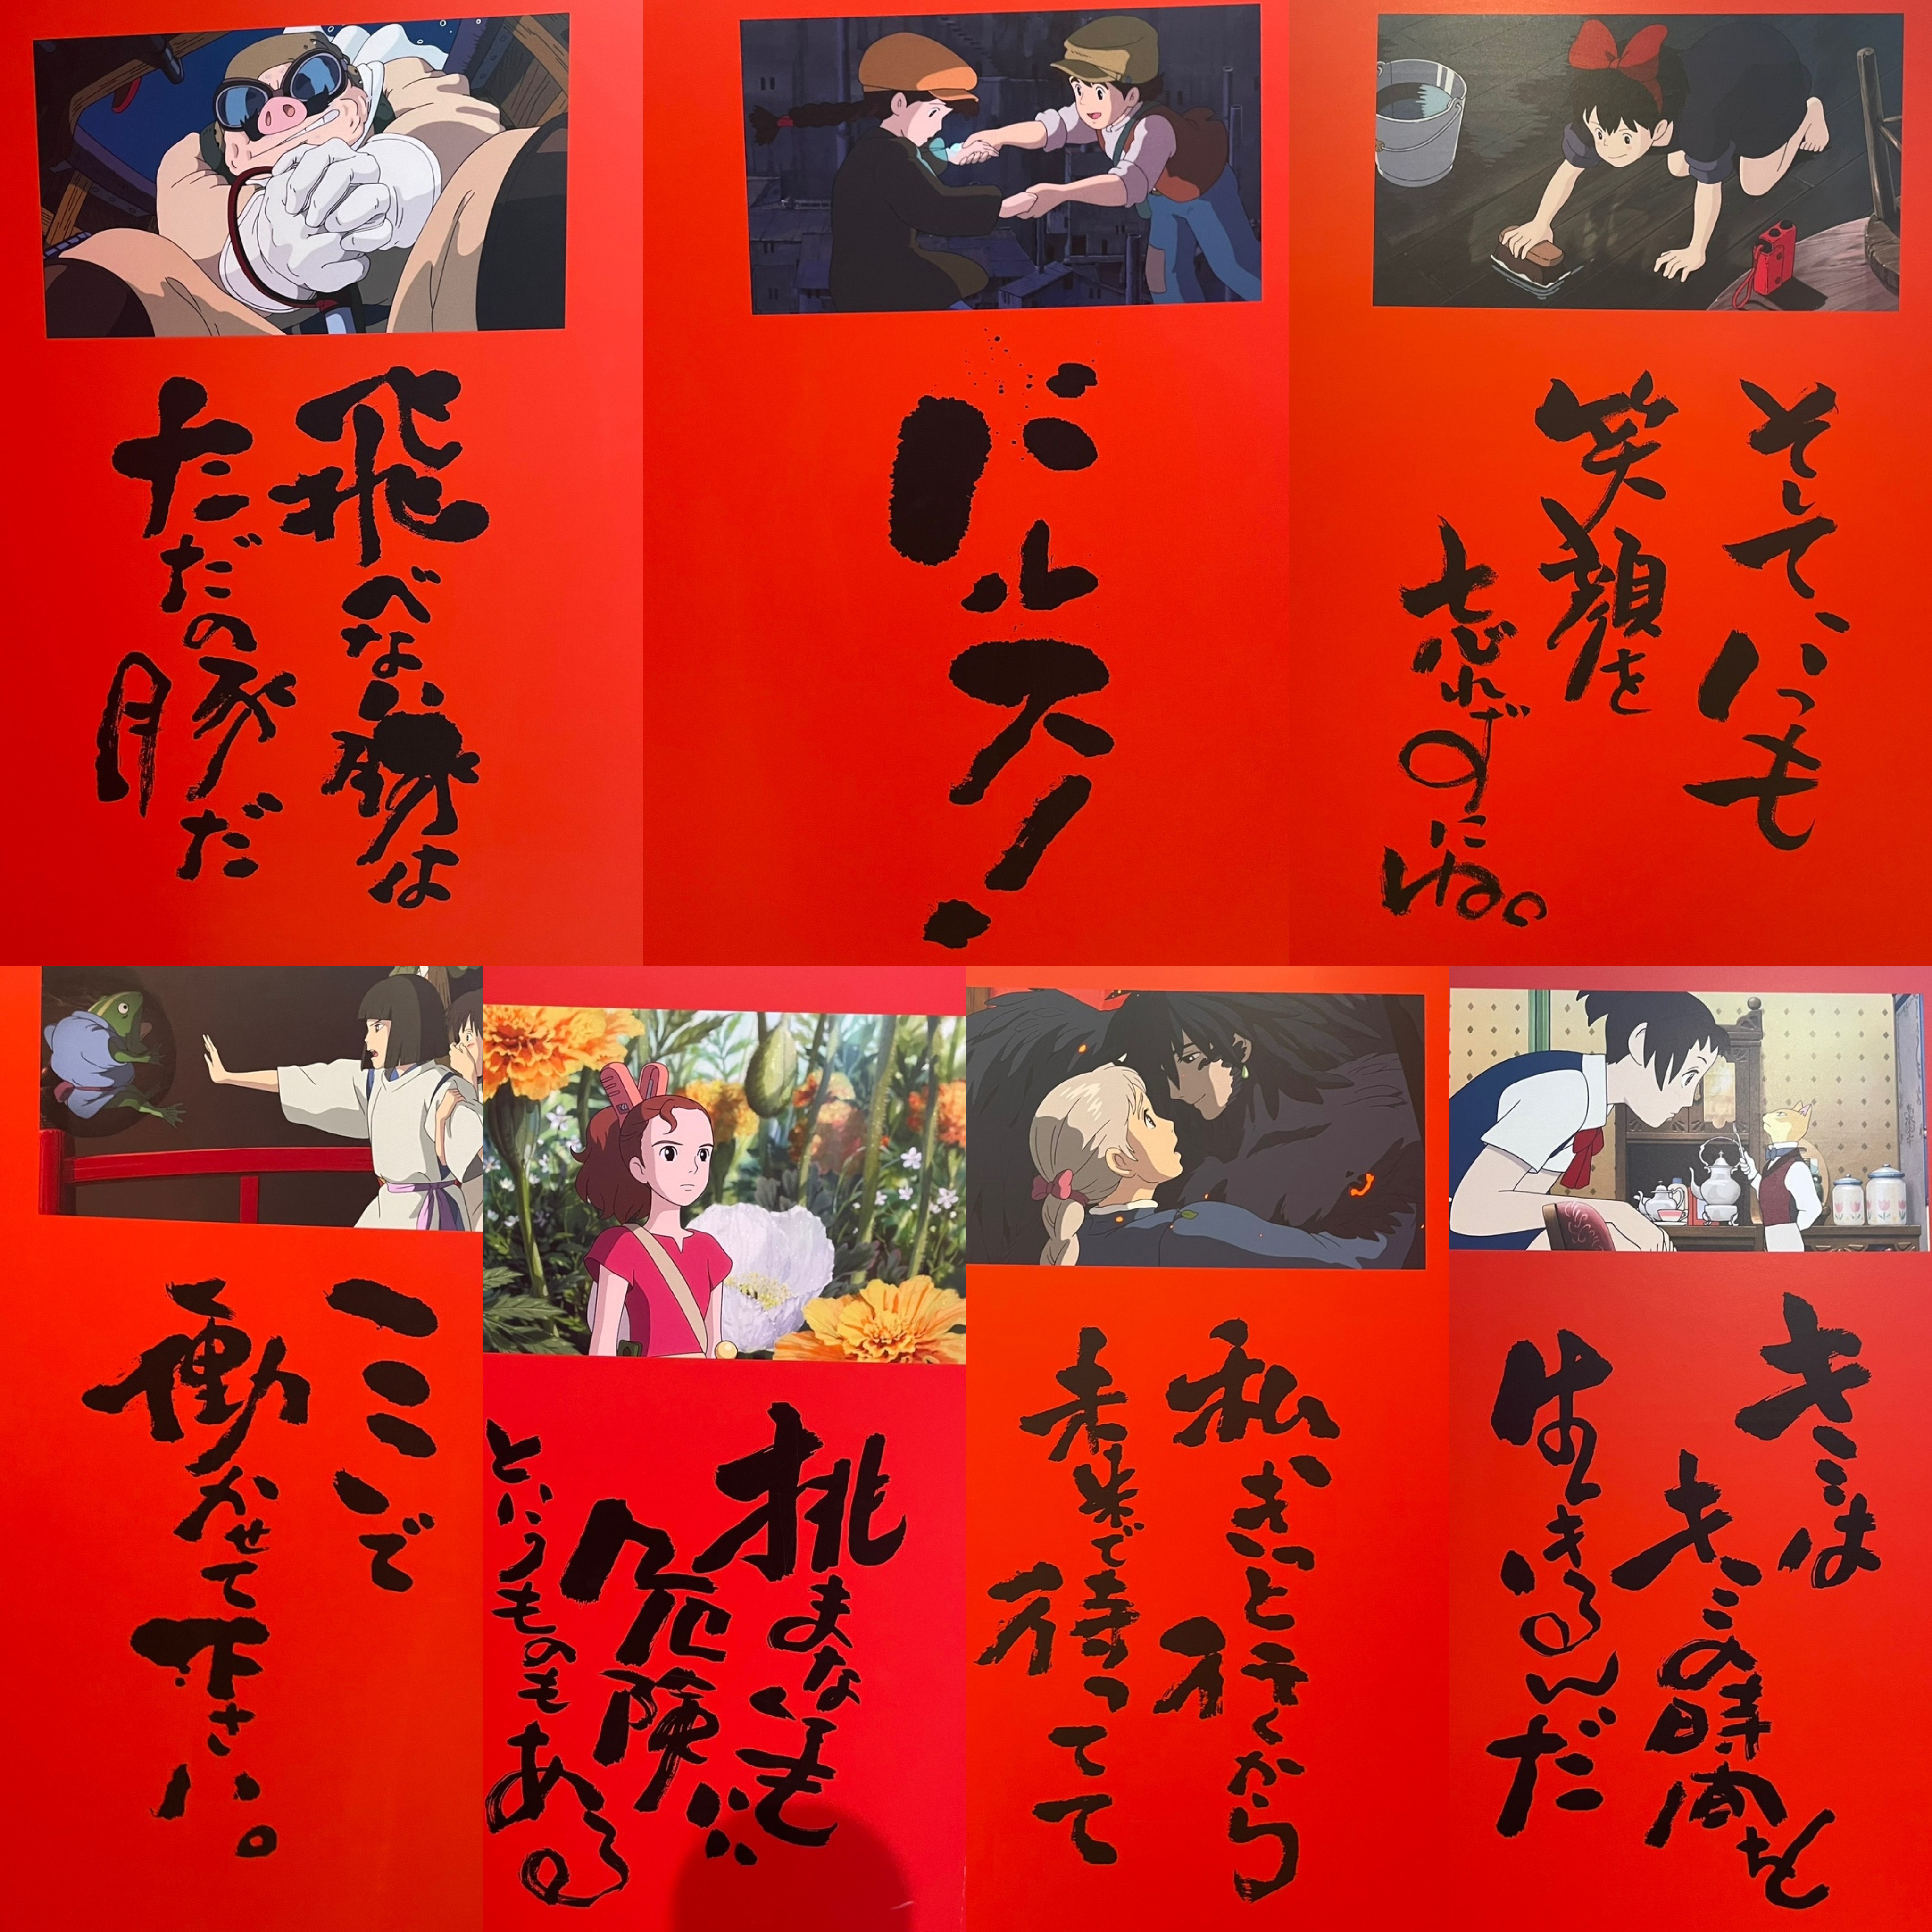 飛べない豚は
ただの豚だ
バルス!
そして、いつも
笑顔を
忘れずにね。
ここで
働かせて下さい。
挑まなくてもいい
危険
というものもある
私きっと行くから
未来で待ってて
キミは
キミの時間を
生きるんだ